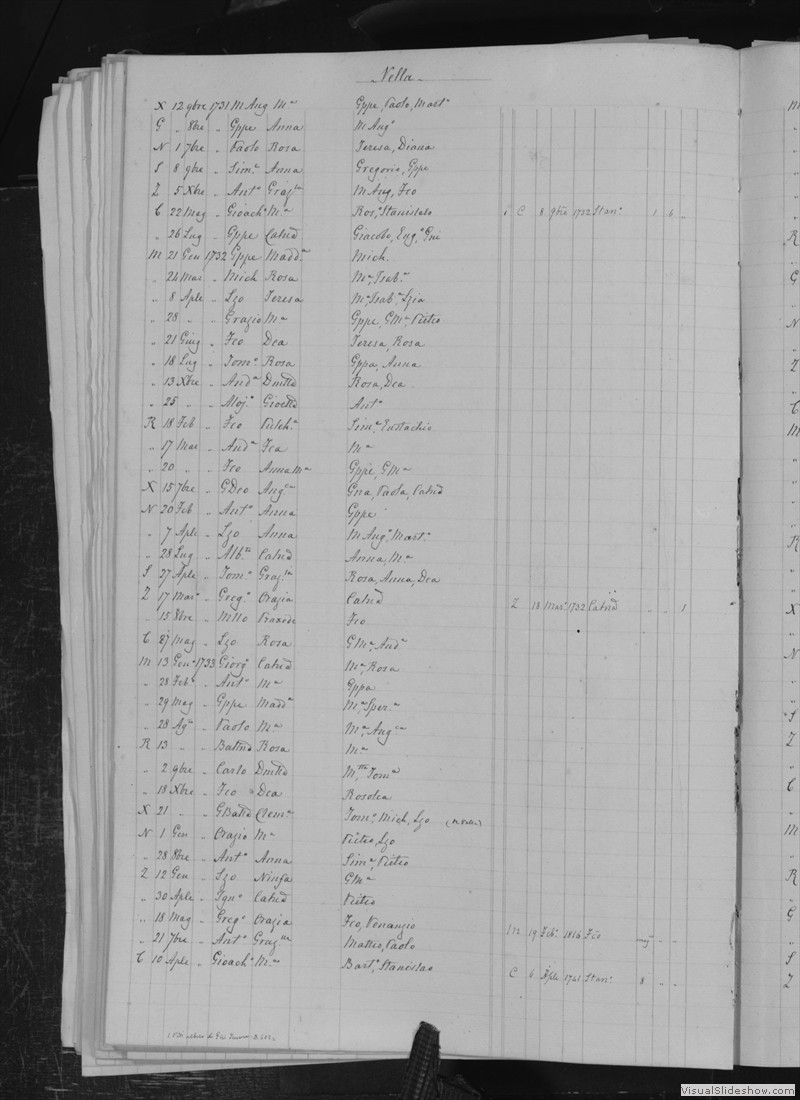 Nella
X 12 9bre 1731 M Aug Mª Gppe, Paolo, Martª
G " 8bre " Gppe Anna M Augª
N 1 7bre " Paolo Rosa Teresa, Diana
S 8 9bre " Simᵉ Anna Gregorio, Gppe
Z 5 Xbre " Antº Grazª M Aug, Fco
C 22 Mag " Gioachº Mª Rosª, Stanislao 1 C 8 9bre 1732 Stanº 1 6 "
" 26 Lug " Gppe Catnª Giacobo, Eugª
M 21 Gen 1732 Gppe Maddª Mich
" 24 Mar " Mich Rosa Mª, Isabª
" 8 Aple " Lzo Teresa Mª, Isabª, Lzia
" 28 " " Grazio Mª Gppe, GMª, Pietro
" 21 Giug " Fco Dea Teresa, Rosa
" 18 Lug " Tomº Rosa Gppa, Anna
" 13 Xbre " Andª Dmtla Rosa, Dea
" 25 " " Alojº Antª
R 18 Feb " Fco Pulchª Simᵉ, Eustachio
" 17 Mar " Andª Fca Mª
" 20 " " Fco Anna Mª Gppe, GMª
X 15 7bre " GDeo Angᶜᵃ Gna, Paola, Catnª
N 20 Feb " Antº Anna Gppe
" 7 Aple " Lzo Anna M Augª, Martª
" 28 Lug " Albᵗᵒ Catnª Anna, Mª
S 27 Aple " Tomº Grazª Rosa, Anna, Dea
Z 17 Marº " Gregº Orazia Catnª Z 18 Marº 1732 Catnª " " 1
" 15 8bre " Mllo Fco
C 27 Mag " Lzo Rosa GMª, Andª
M 13 Genº 1733 Giorgº Catnª Mª, Rosa
" 28 Febº " Antº Mª Gppa
" 29 Mag " Gppe Maddª Mª, Sperª
" 28 Agº " Paolo Mª Mª, Augᶜᵃ
R 13 " " Battnª Rosa Mª
" 2 9bre " Carlo Dmtla Mᵗᵗᵃ, Tomª
" 18 Xbre " Fco Dea Rosolea
X 21 " " GBatta Clemª Tomº, Mich, Lzo
N 1 Gen " Orazio Mª Pietro, Lzo
" 28 8bre " Antº Anna Simᵉ, Pietro
Z 12 Gen " Lzo Ninfa GMª
" 30 Aple " Ignº Catnª Pietro
" 18 Mag " Gregº Orazia Fco, Venanzio M 19 Febº 1816 Fco " "
" 21 7bre " Antº Grazᵐᵃ Matteo, Paolo
C 10 Aple " Gioachº Mª Bartº, Stanislao C 6 Aple 1741 Stanº 8 " "
VisualSlideshow.com